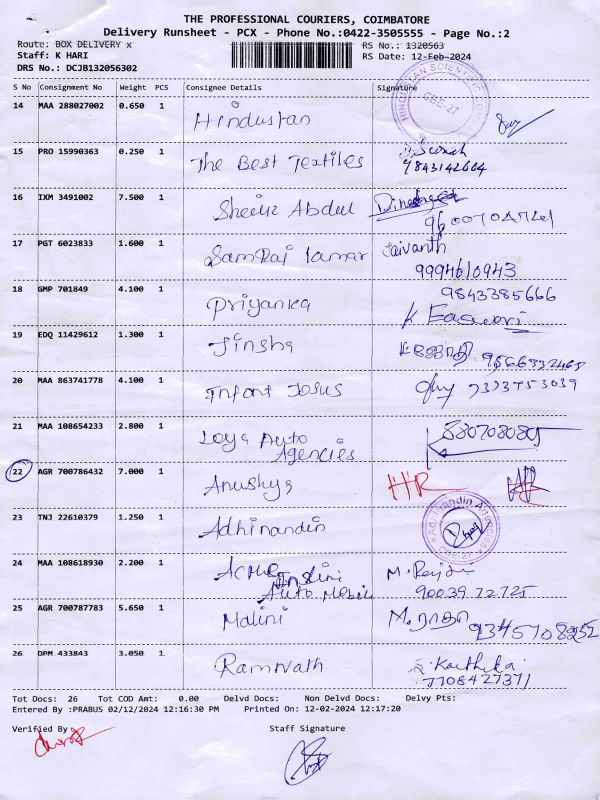 THE PROFESSIONAL COURIERS, COIMBATORE
Delivery Runsheet - PCX - Phone No.:0422-3505555 - Page No.:2
Route: BOX DELIVERY x RS No.: 1320563
Staff: K HARI RS Date: 12-Feb-2024
DRS No.: DCJB132056302
S No Consignment No Weight PCS Consignee Details Signature
14 MAA 288027002 0.650 1 Hindustan
CBE-27
15 PRO 15990363 0.250 1 The Best Textiles
9843142664
16 IXM 3491002 7.500 1 Abdul
17 PGT 6023833 1.600 1 Jaivanth
9994610943
18 GMP 701849 4.100 1 Priyanka 9843385666
K. Easwari
19 EDQ 11429612 1.300 1 Jinsha
20 MAA 863741778 4.100 1 Infant Josus 7373753039
21 MAA 108654233 2.800 1 Loya Auto
Agencies
22 AGR 700786432 7.000 1 Anushya HR
23 TNJ 22610379 1.250 1 Adhinandin
CBE-27
24 MAA 108618930 2.200 1 M. Rajini
Auto Mobil 90039 72725
25 AGR 700787783 5.650 1 Malini M. ராதா
26 DPM 433843 3.050 1 Ramnath Karthika
7708427371
Tot Docs: 26 Tot COD Amt: 0.00 Delvd Docs: Non Delvd Docs: Delvy Pts:
Entered By :PRABUS 02/12/2024 12:16:30 PM Printed On: 12-02-2024 12:17:20
Verified By Staff Signature